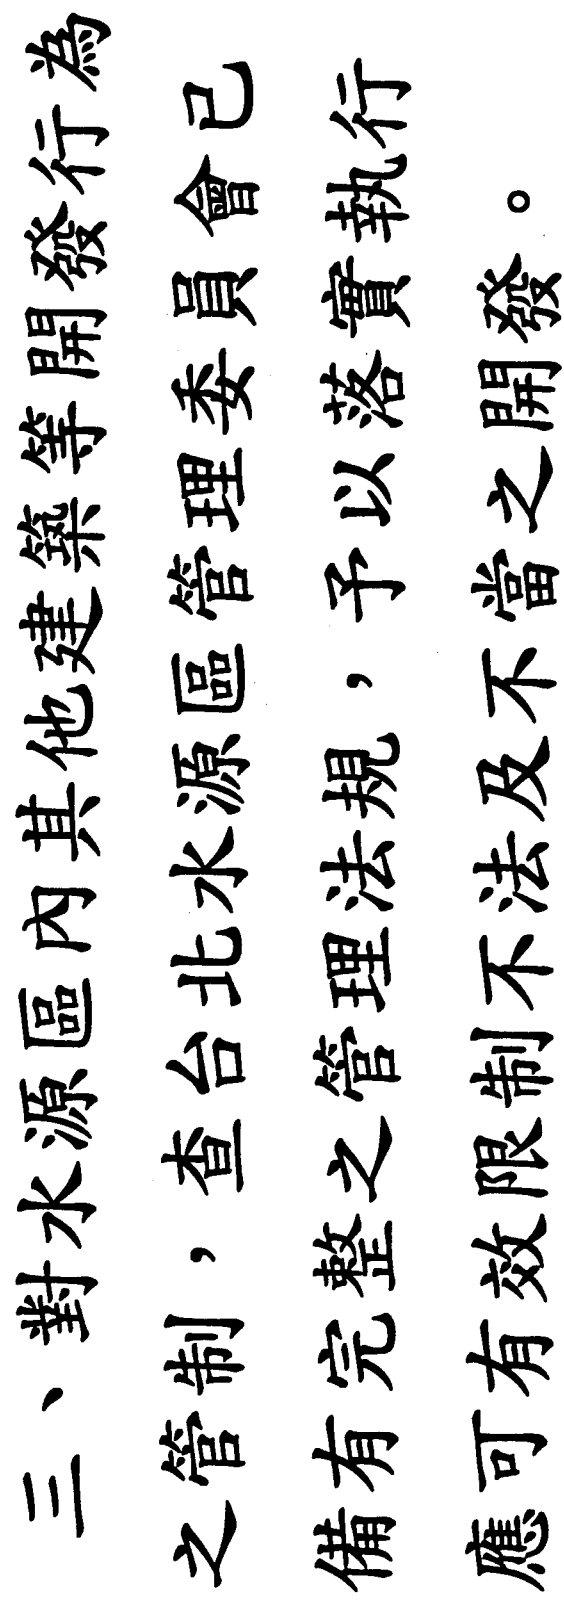 三、對水源區內其他建築等開發行為
之管制，查台北水源區管理委員會已
備有完整之管理法規，予以落實執行
應可有效限制不法及不當之開發。